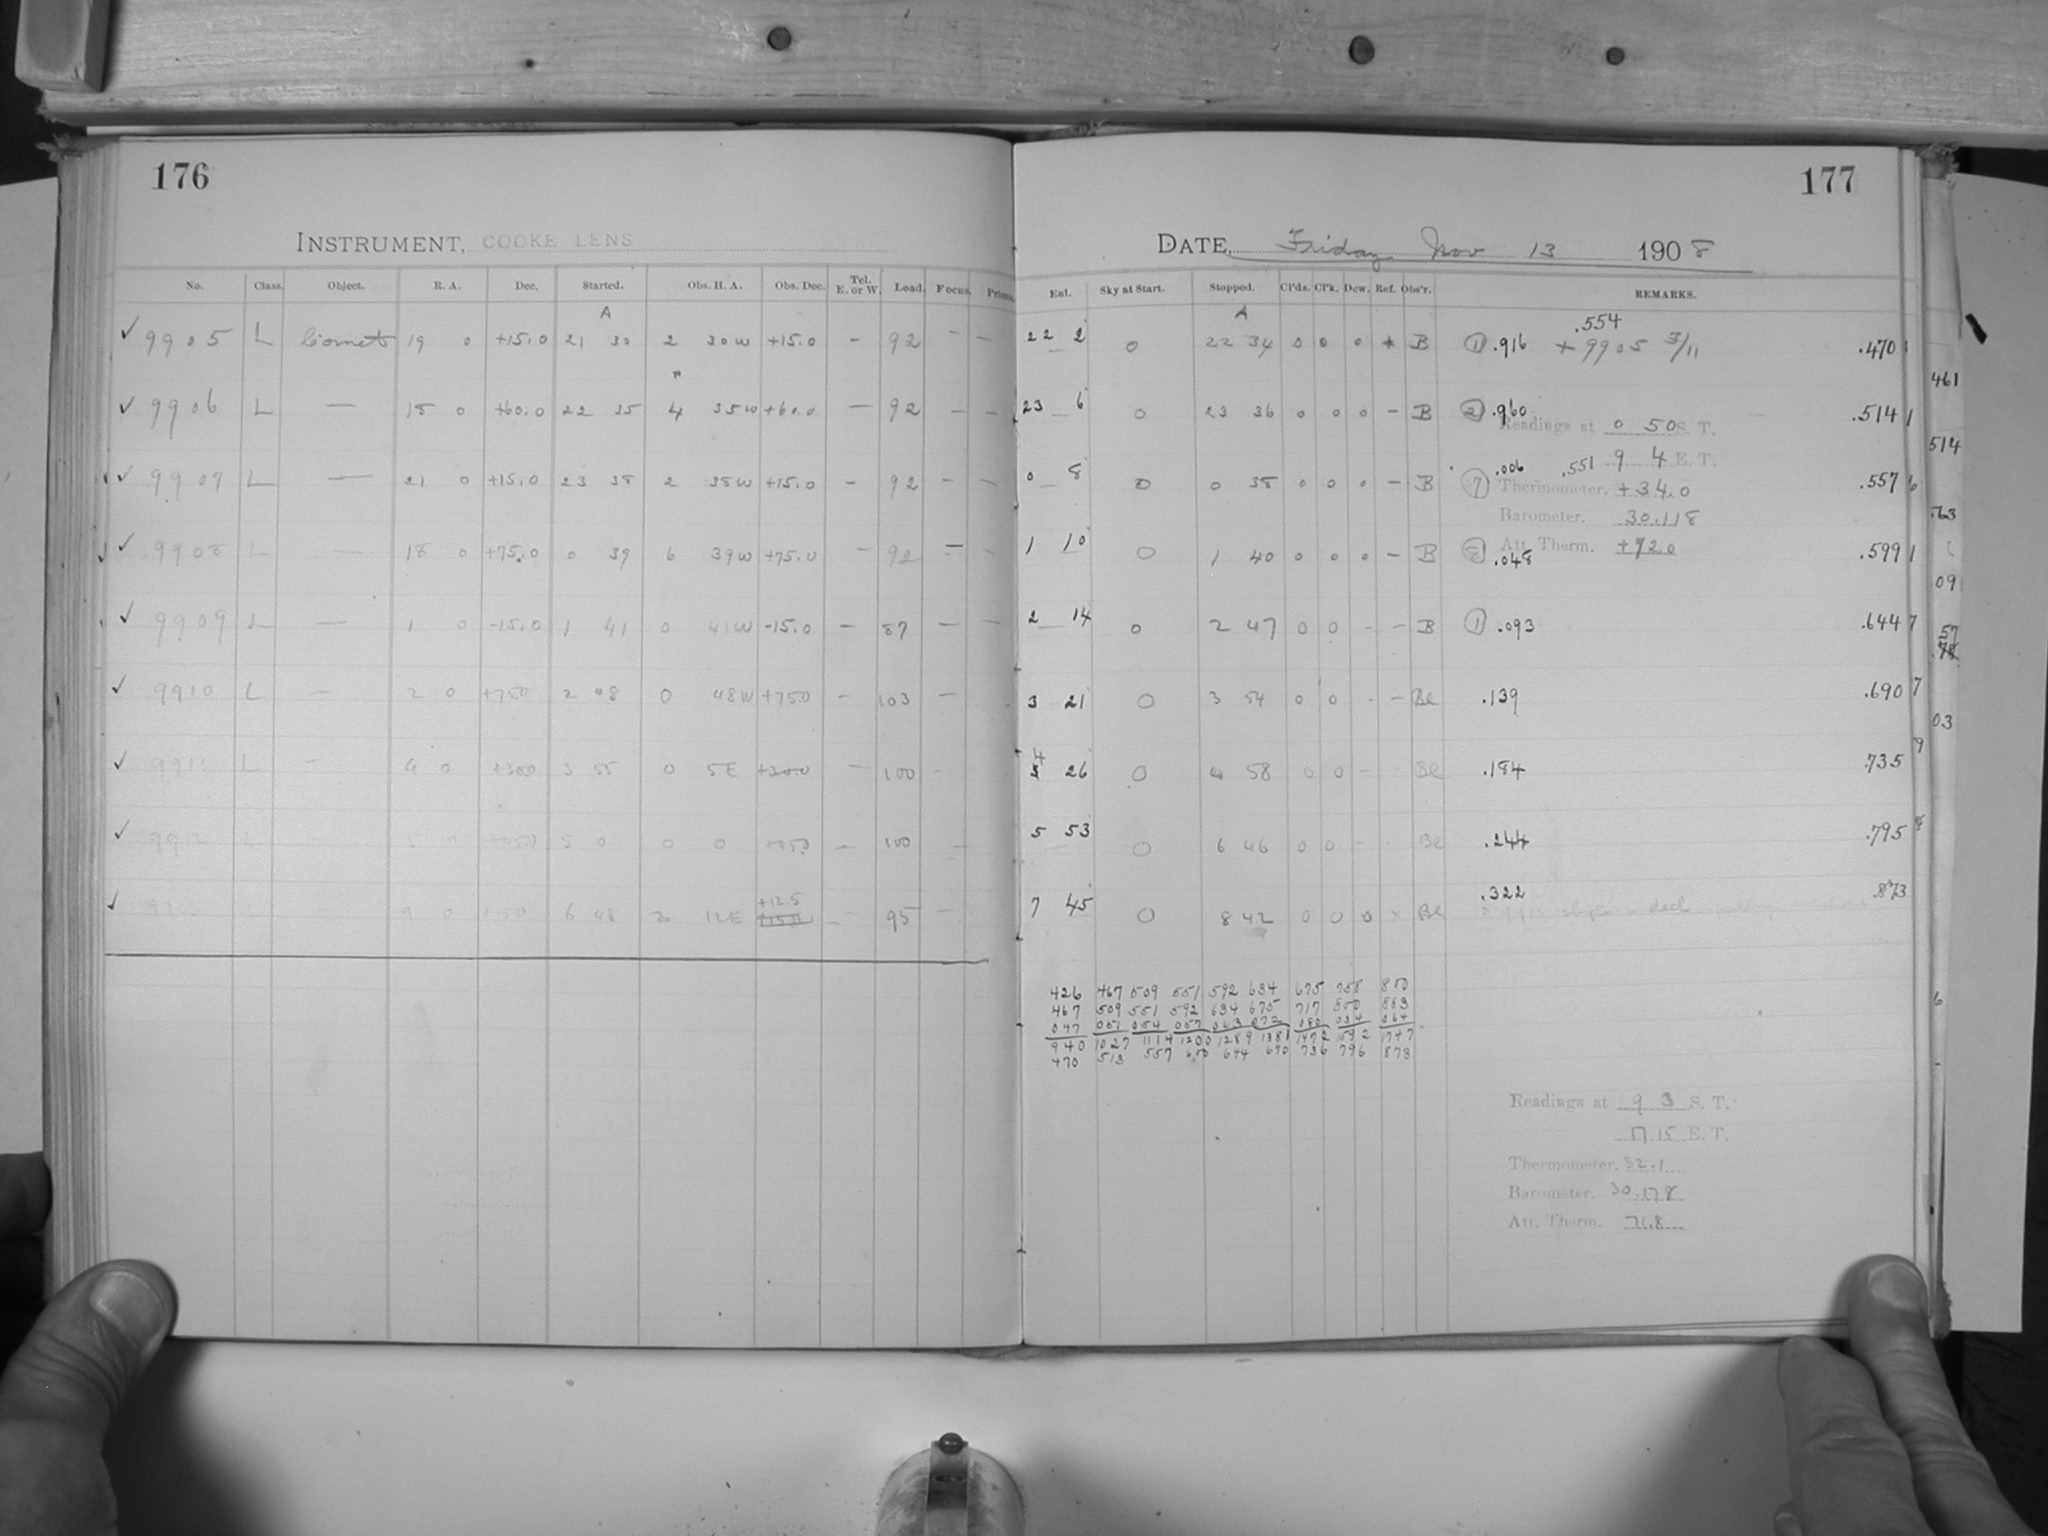 176
INSTRUMENT, COOKE LENS
No. Class. Object. R. A. Dec. Started. Obs. H. A. Obs. Dec. Tel. E. or W. Load. Focus. Prisms.
A
✓ 9905 L Comet 19 0 +15.0 21 30 2 30W +15.0 – 92 – –
✓ 9906 L — 18 0 +60.0 22 35 4 35W +60.0 — 92 – –
✓ 9907 L — 21 0 +15.0 23 38 2 38W +15.0 – 92 – –
✓ 9908 L — 18 0 +75.0 0 39 6 39W +75.0 – 92 – –
✓ 9909 L — 1 0 -15.0 1 41 0 41W -15.0 – 87 – –
✓ 9910 L – 2 0 +75.0 2 48 0 48W +75.0 – 103 –
✓ 9911 L – 4 0 +30.0 3 55 0 5E +30.0 – 100 –
✓ 9912 L – 5 0 +45.0 5 0 0 0 +45.0 – 100 –
+12.5
✓ 9 0 6 48 2 12E – 95 –
177
DATE, Friday Nov 13 1908
Ent. Sky at Start. Stopped. Cl'ds. Cl'k. Dew. Ref. Obs'r. REMARKS.
A
.554
22 2 0 22 34 0 0 0 * B ① .916 + 9905 3/11 .470
23 6 0 23 36 0 0 0 – B ② .960 .514
Readings at 0 50 S. T.
9 4 E. T.
.006 .551
0 8 0 0 38 0 0 0 – B ⑦ Thermometer. +34.0 .557
Barometer. 30.118
Att. Therm. +72.0
1 10 0 1 40 0 0 0 – B .048 .599
2 14 0 2 47 0 0 - – B ① .093 .644
3 21 0 3 54 0 0 - – Bl .139 .690
4
26 0 4 58 0 0 - - Bl .184 .735
5 53 0 6 46 0 0 - - Bl .244 .795
.322
7 45 0 8 42 0 0 0 × Bl .873
426 467 509 551 592 634 675 758 800
467 509 551 592 634 675 717 800 883
047 051 054 057 063 072 080 034 064
940 1027 1114 1200 1289 1381 1472 1592 1747
470 513 557 600 644 690 736 796 873
Readings at 9 3 S. T.
17 15 E. T.
Thermometer. 32.1
Barometer. 30.178
Att. Therm. 71.8
461
514
09
57
03